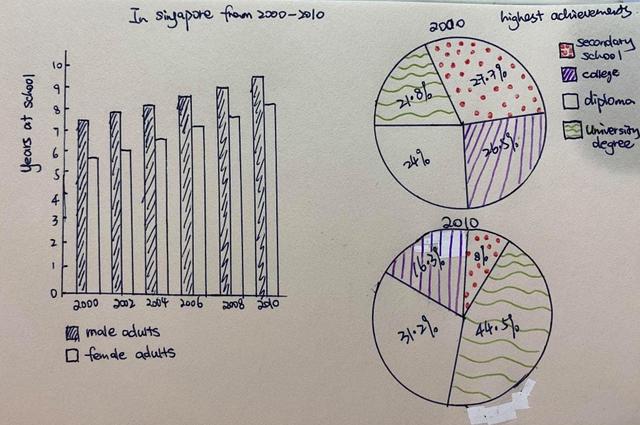 In singapore from 2000-2010
years at school
10
9
8
7
6
5
4
3
2
1
0
2000
2002
2004
2006
2008
2010
male adults
female adults
highest achievements
2000
27.7%
26.5%
24%
21.8%
secondary school
college
diploma
University degree
2010
8%
44.5%
31.2%
16.3%